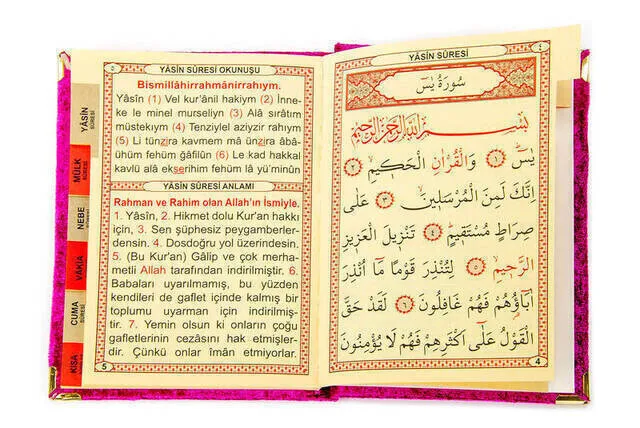 YÂSÎN SÛRESİ OKUNUŞU
Bismillâhirrahmânirrahıym.
Yâsîn (1) Vel kur'ânil hakiym (2) İnne-
ke le minel murseliyn (3) Alâ sırâtım
müstekıym (4) Tenziylel aziyzir rahıym
(5) Li tünzira kavmem mâ ünzira âbâ-
ühüm fehüm ğâfilûn (6) Le kad hakkal
kavlü alâ ekserihim fehüm lâ yü'minûn
YÂSÎN SÛRESİ ANLAMI
Rahman ve Rahim olan Allah'ın İsmiyle.
1. Yâsîn, 2. Hikmet dolu Kur'an hakkı
için, 3. Sen şüphesiz peygamberler-
densin. 4. Dosdoğru yol üzerindesin.
5. (Bu Kur'an) Gâlip ve çok merha-
metli Allah tarafından indirilmiştir. 6.
Babaları uyarılmamış, bu yüzden
kendileri de gaflet içinde kalmış bir
toplumu uyarman için indirilmiş-
tir. 7. Yemin olsun ki onların çoğu
gafletlerinin cezâsını hak etmişler-
dir. Çünkü onlar îman etmiyorlar.
5
YÂSÎN SÛRESİ
MÜLK SÛRESİ
NEBE SÛRESİ
VAKIA
CUMA SÛRESİ
KISA
YÂSÎN SÛRESİ
٤
سُورَةُ يٰسٓ
بِسْمِ اللّٰهِ الرَّحْمٰنِ الرَّحِيمِ
يٰسٓ ﴿١﴾ وَالْقُرْاٰنِ الْحَكِيمِ ﴿٢﴾
اِنَّكَ لَمِنَ الْمُرْسَلِينَ ﴿٣﴾ عَلٰى
صِرَاطٍ مُسْتَقِيمٍ ﴿٤﴾ تَنْزِيلَ الْعَزِيزِ
الرَّحِيمِ ﴿٥﴾ لِتُنْذِرَ قَوْمًا مَٓا اُنْذِرَ
اٰبَٓاؤُ۬هُمْ فَهُمْ غَافِلُونَ ﴿٦﴾ لَقَدْ حَقَّ
الْقَوْلُ عَلٰٓى اَكْثَرِهِمْ فَهُمْ لَا يُؤْمِنُونَ
4